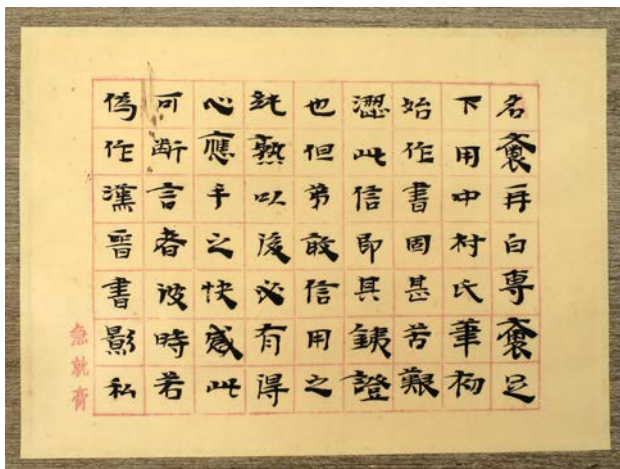 名褱再白専褱足
下用中村氏筆初
始作書固甚苦艱
澀此信即其銕證
也但弟敢信用之
純熟以後必有得
心應手之快感此
可断言者彼時若
偽作漢晉書影私
急就齋